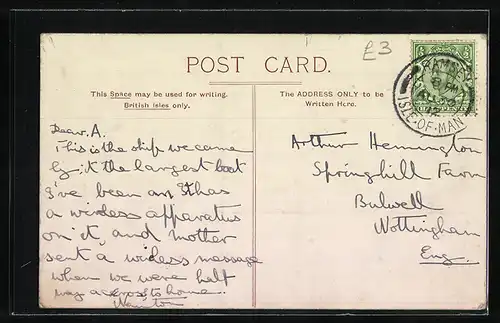 £3
POST CARD.
This Space may be used for writing.
British Isles only.
The ADDRESS ONLY to be
Written Here.
RAMSEY
ISLE-OF-MAN
Dear A.
This is the ship we came
by. it the largest boat
I've been on. It has
a wireless apparatus
on it, and mother
sent a wireless message
when we were half
way across to home.
Arthur Hemington
Springhill Farm
Bulwell
Nottingham
Eng.